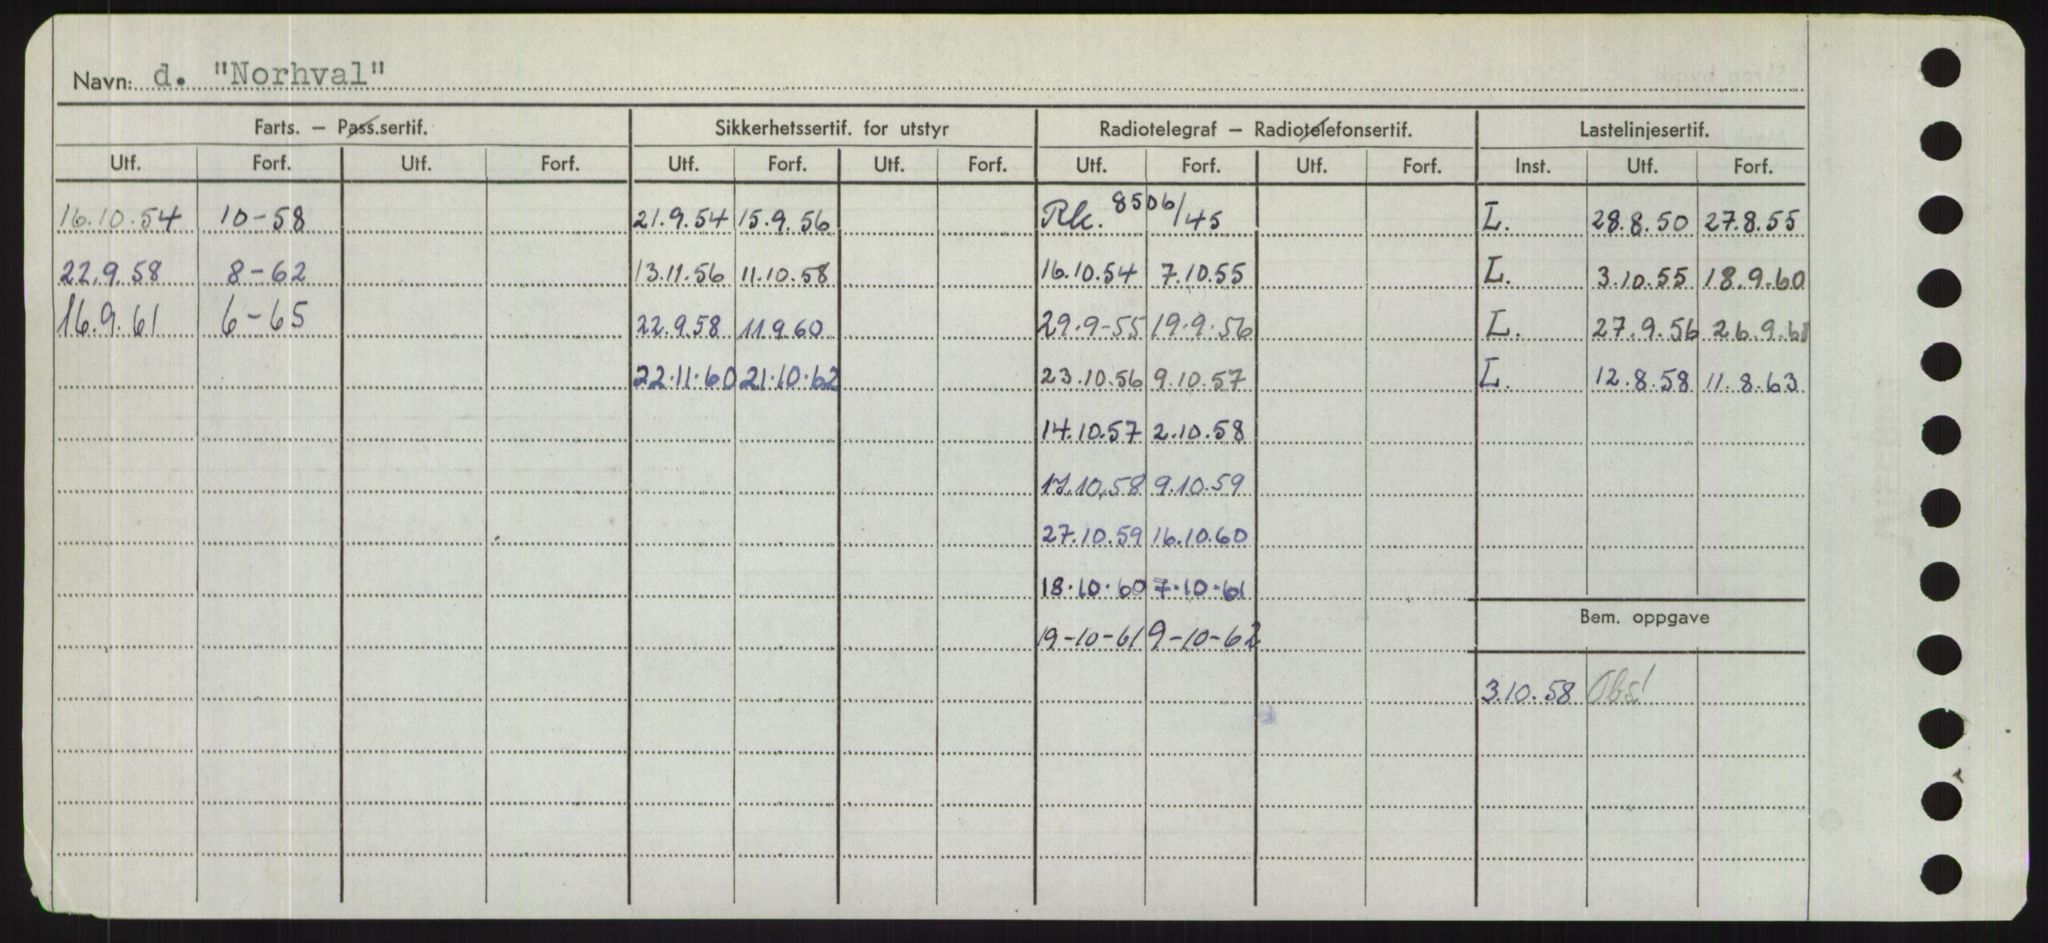 Navn: d. "Norhval"
Farts. – Pass.sertif. Sikkerhetssertif. for utstyr Radiotelegraf – Radiotelefonsertif. Lastelinjesertif.
Utf. Forf. Utf. Forf. Utf. Forf. Utf. Forf. Utf. Forf. Utf. Forf. Inst. Utf. Forf.
16.10.54 10-58 21.9.54 15.9.56 Rk. 8506/45 L. 28.8.50 27.8.55
22.9.58 8-62 13.11.56 11.10.58 16.10.54 7.10.55 L. 3.10.55 18.9.60
16.9.61 6-65 22.9.58 11.9.60 29.9-55 19.9.56 L. 27.9.56 26.9.61
22.11.60 21.10.62 23.10.56 9.10.57 L. 12.8.58 11.8.63
14.10.57 2.10.58
17.10.58 9.10.59
27.10.59 16.10.60
18.10.60 7.10.61
Bem. oppgave
19-10-61 9-10-62
3.10.58 Obs!